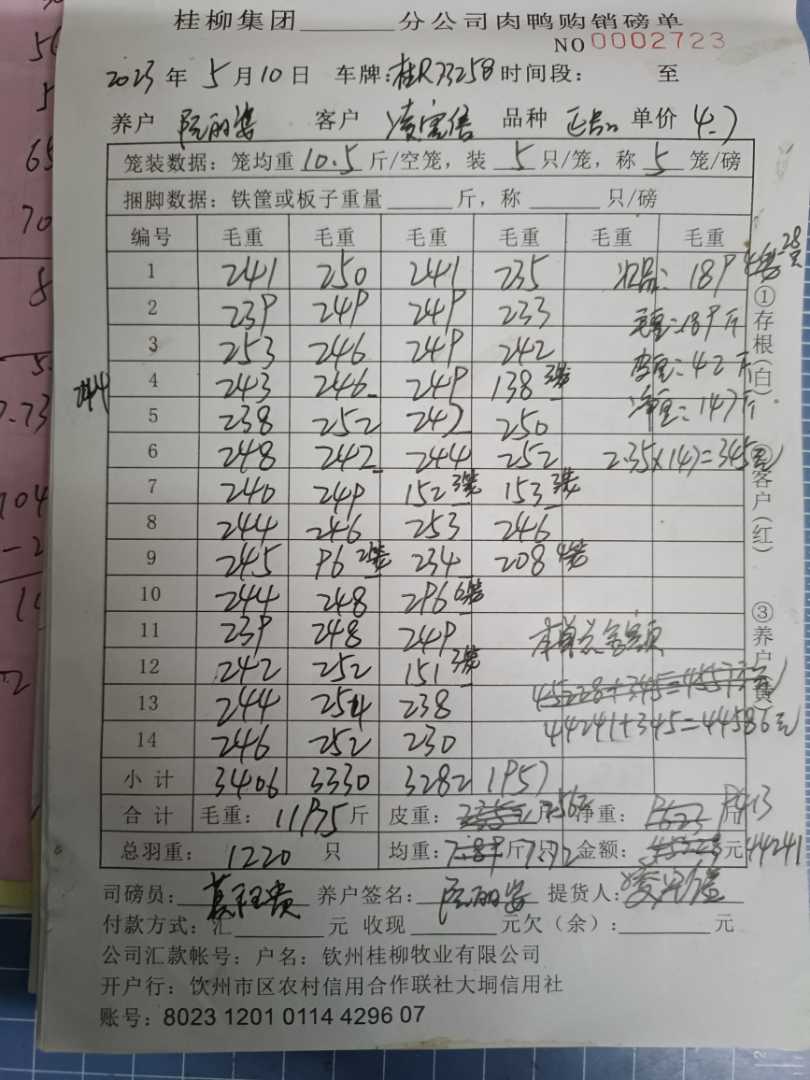 桂柳集团________分公司肉鸭购销磅单
NO 0002723
2023年5月10日 车牌:桂R73258 时间段: 至
养户 阮丽娑 客户 凌宝信 品种 正品 单价 4.7
笼装数据:笼均重10.5斤/空笼,装5只/笼,称5笼/磅
捆脚数据:铁筐或板子重量______斤,称______只/磅
编号 毛重 毛重 毛重 毛重 毛重 毛重
1 241 250 241 235 次品: 189 28只
2 239 249 249 233 毛重:189斤
3 253 246 249 242 皮重:42斤
244 4 243 246 249 138 3笼 净重:147斤
5 238 252 247 250
6 248 242 244 252 2.35×147=345元
7 240 249 152 3笼 153 3笼
8 244 246 253 246
9 245 96 2笼 234 208 4笼
10 244 248 296 6笼
11 239 248 249 本单总金额
12 242 252 151 3笼
13 244 254 238 45228+345=45573元
14 246 252 230 44241+345=44586元
小计 3406 3330 3282 1957
合计 毛重:11975斤 皮重: 2562 净重: 9623 9413
总羽重:1220只 均重:7.89斤 7.72 金额:45228元 44241
①存根(白) ②客户(红) ③养户(黄)
司磅员: 养户签名:阮丽娑 提货人:
付款方式:汇______元 收现______元欠(余):______元
公司汇款帐号:户名:钦州桂柳牧业有限公司
开户行:钦州市区农村信用合作联社大垌信用社
账号:8023 1201 0114 4296 07
56
5
65
70
8
5
7.73
704
-2
2